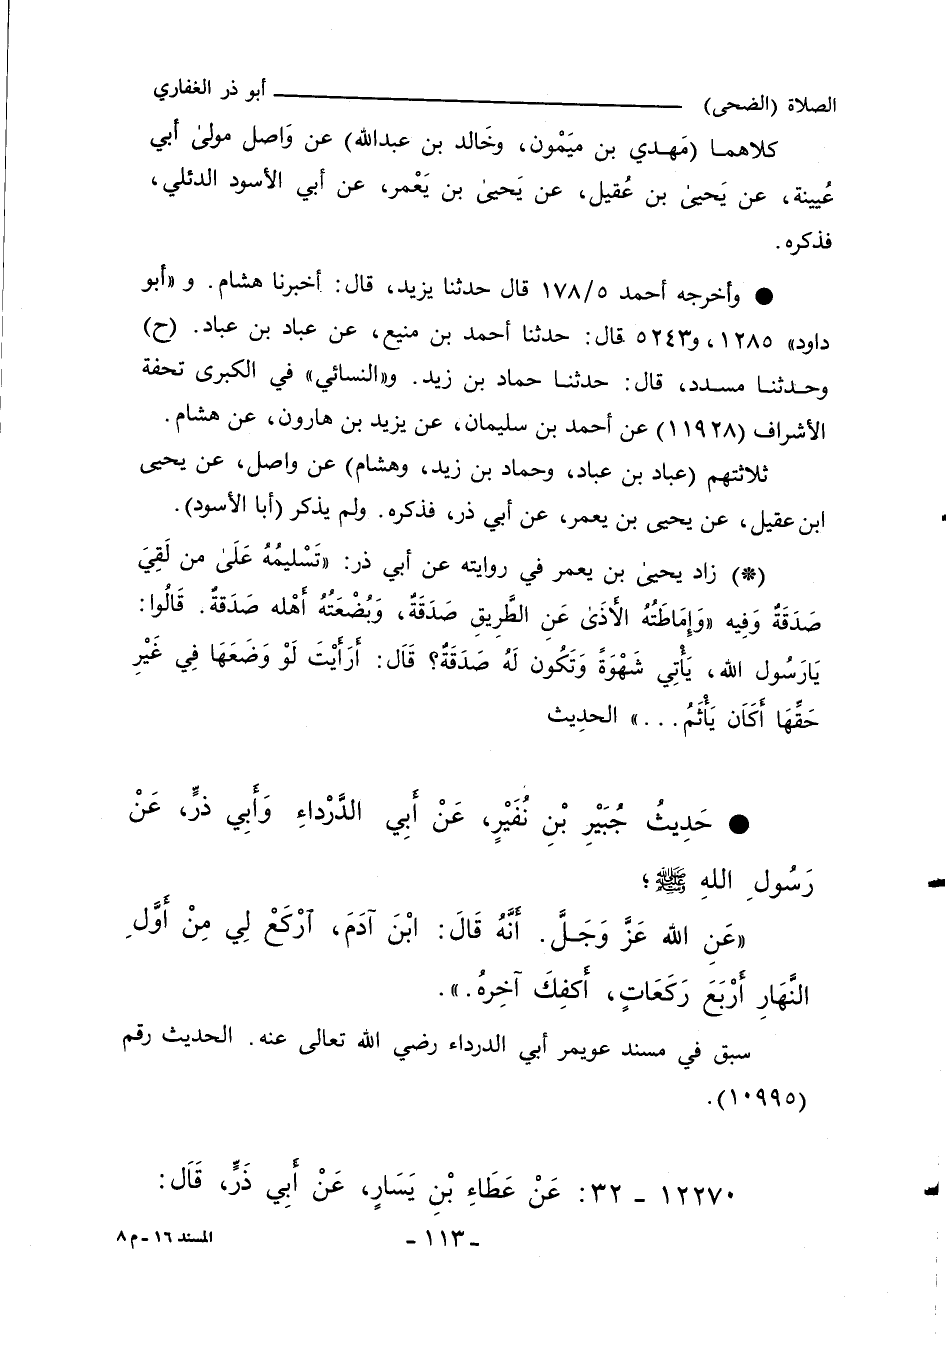 الصلاة (الضحى) ــــــــــــــــ أبو ذر الغفاري
كلاهما (مَهدي بن ميَمْون، وخَالد بن عبدالله) عن وَاصل مولىٰ أبي
عُيينة، عن يَحيىٰ بن عُقيل، عن يَحيىٰ بن يَعْمر، عن أبي الأسود الدئلي،
فذكره.
● وأخرجه أحمد ١٧٨/٥ قال حدثنا يزيد، قال: أخبرنا هشام. و «أبو
داود» ١٢٨٥، و٥٢٤٣ قال: حدثنا أحمد بن منيع، عن عباد بن عباد. (ح)
وحدثنا مسدد، قال: حدثنا حماد بن زيد. و«النسائي» في الكبرى تحفة
الأشراف (١١٩٢٨) عن أحمد بن سليمان، عن يزيد بن هارون، عن هشام.
ثلاثتهم (عباد بن عباد، وحماد بن زيد، وهشام) عن واصل، عن يحيى
ابن عقيل، عن يحيى بن يعمر، عن أبي ذر، فذكره. ولم يذكر (أبا الأسود).
(*) زاد يحيىٰ بن يعمر في روايته عن أبي ذر: «تَسْليمُهُ عَلَىٰ من لَقِيَ
صَدَقَةٌ وَفِيه «وَإِمَاطَتُهُ الأَذىٰ عَنِ الطَّرِيقِ صَدَقَةٌ، وَبُضْعَتُهُ أَهْله صَدَقةٌ. قَالُوا:
يَارَسُول الله، يَأْتِي شَهْوَةً وَتَكُون لَهُ صَدَقَةٌ؟ قَالَ: أَرَأَيْتَ لَوْ وَضَعَهَا فِي غَيْرِ
حَقِّهَا أَكَان يَأْثَمُ...» الحدِيث
● حَدِيثُ جُبَيْرِ بْنِ نُفَيْرٍ، عَنْ أَبِي الدَّرْداءِ وَأَبِي ذرٍّ، عَنْ
رَسُولِ اللهِ ﷺ؛
«عَنِ اللهِ عَزَّ وَجَلَّ. أَنَّهُ قَالَ: ابْنَ آدَمَ، ٱرْكَعْ لِي مِنْ أَوَّلِ
النَّهَارِ أَرْبَعَ رَكَعَاتٍ، أَكفِكَ آخِرهُ.».
سبق في مسند عويمر أبي الدرداء رضي الله تعالى عنه. الحديث رقم
(١٠٩٩٥).
١٢٢٧٠ - ٣٢: عَنْ عَطَاءِ بْنِ يَسَارٍ، عَنْ أَبِي ذَرٍّ، قَالَ:
- ١١٣ -
المسند ١٦ - م ٨